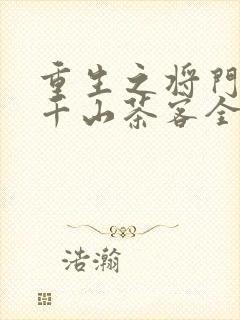 重生之将門
千山茶客全
浩瀚